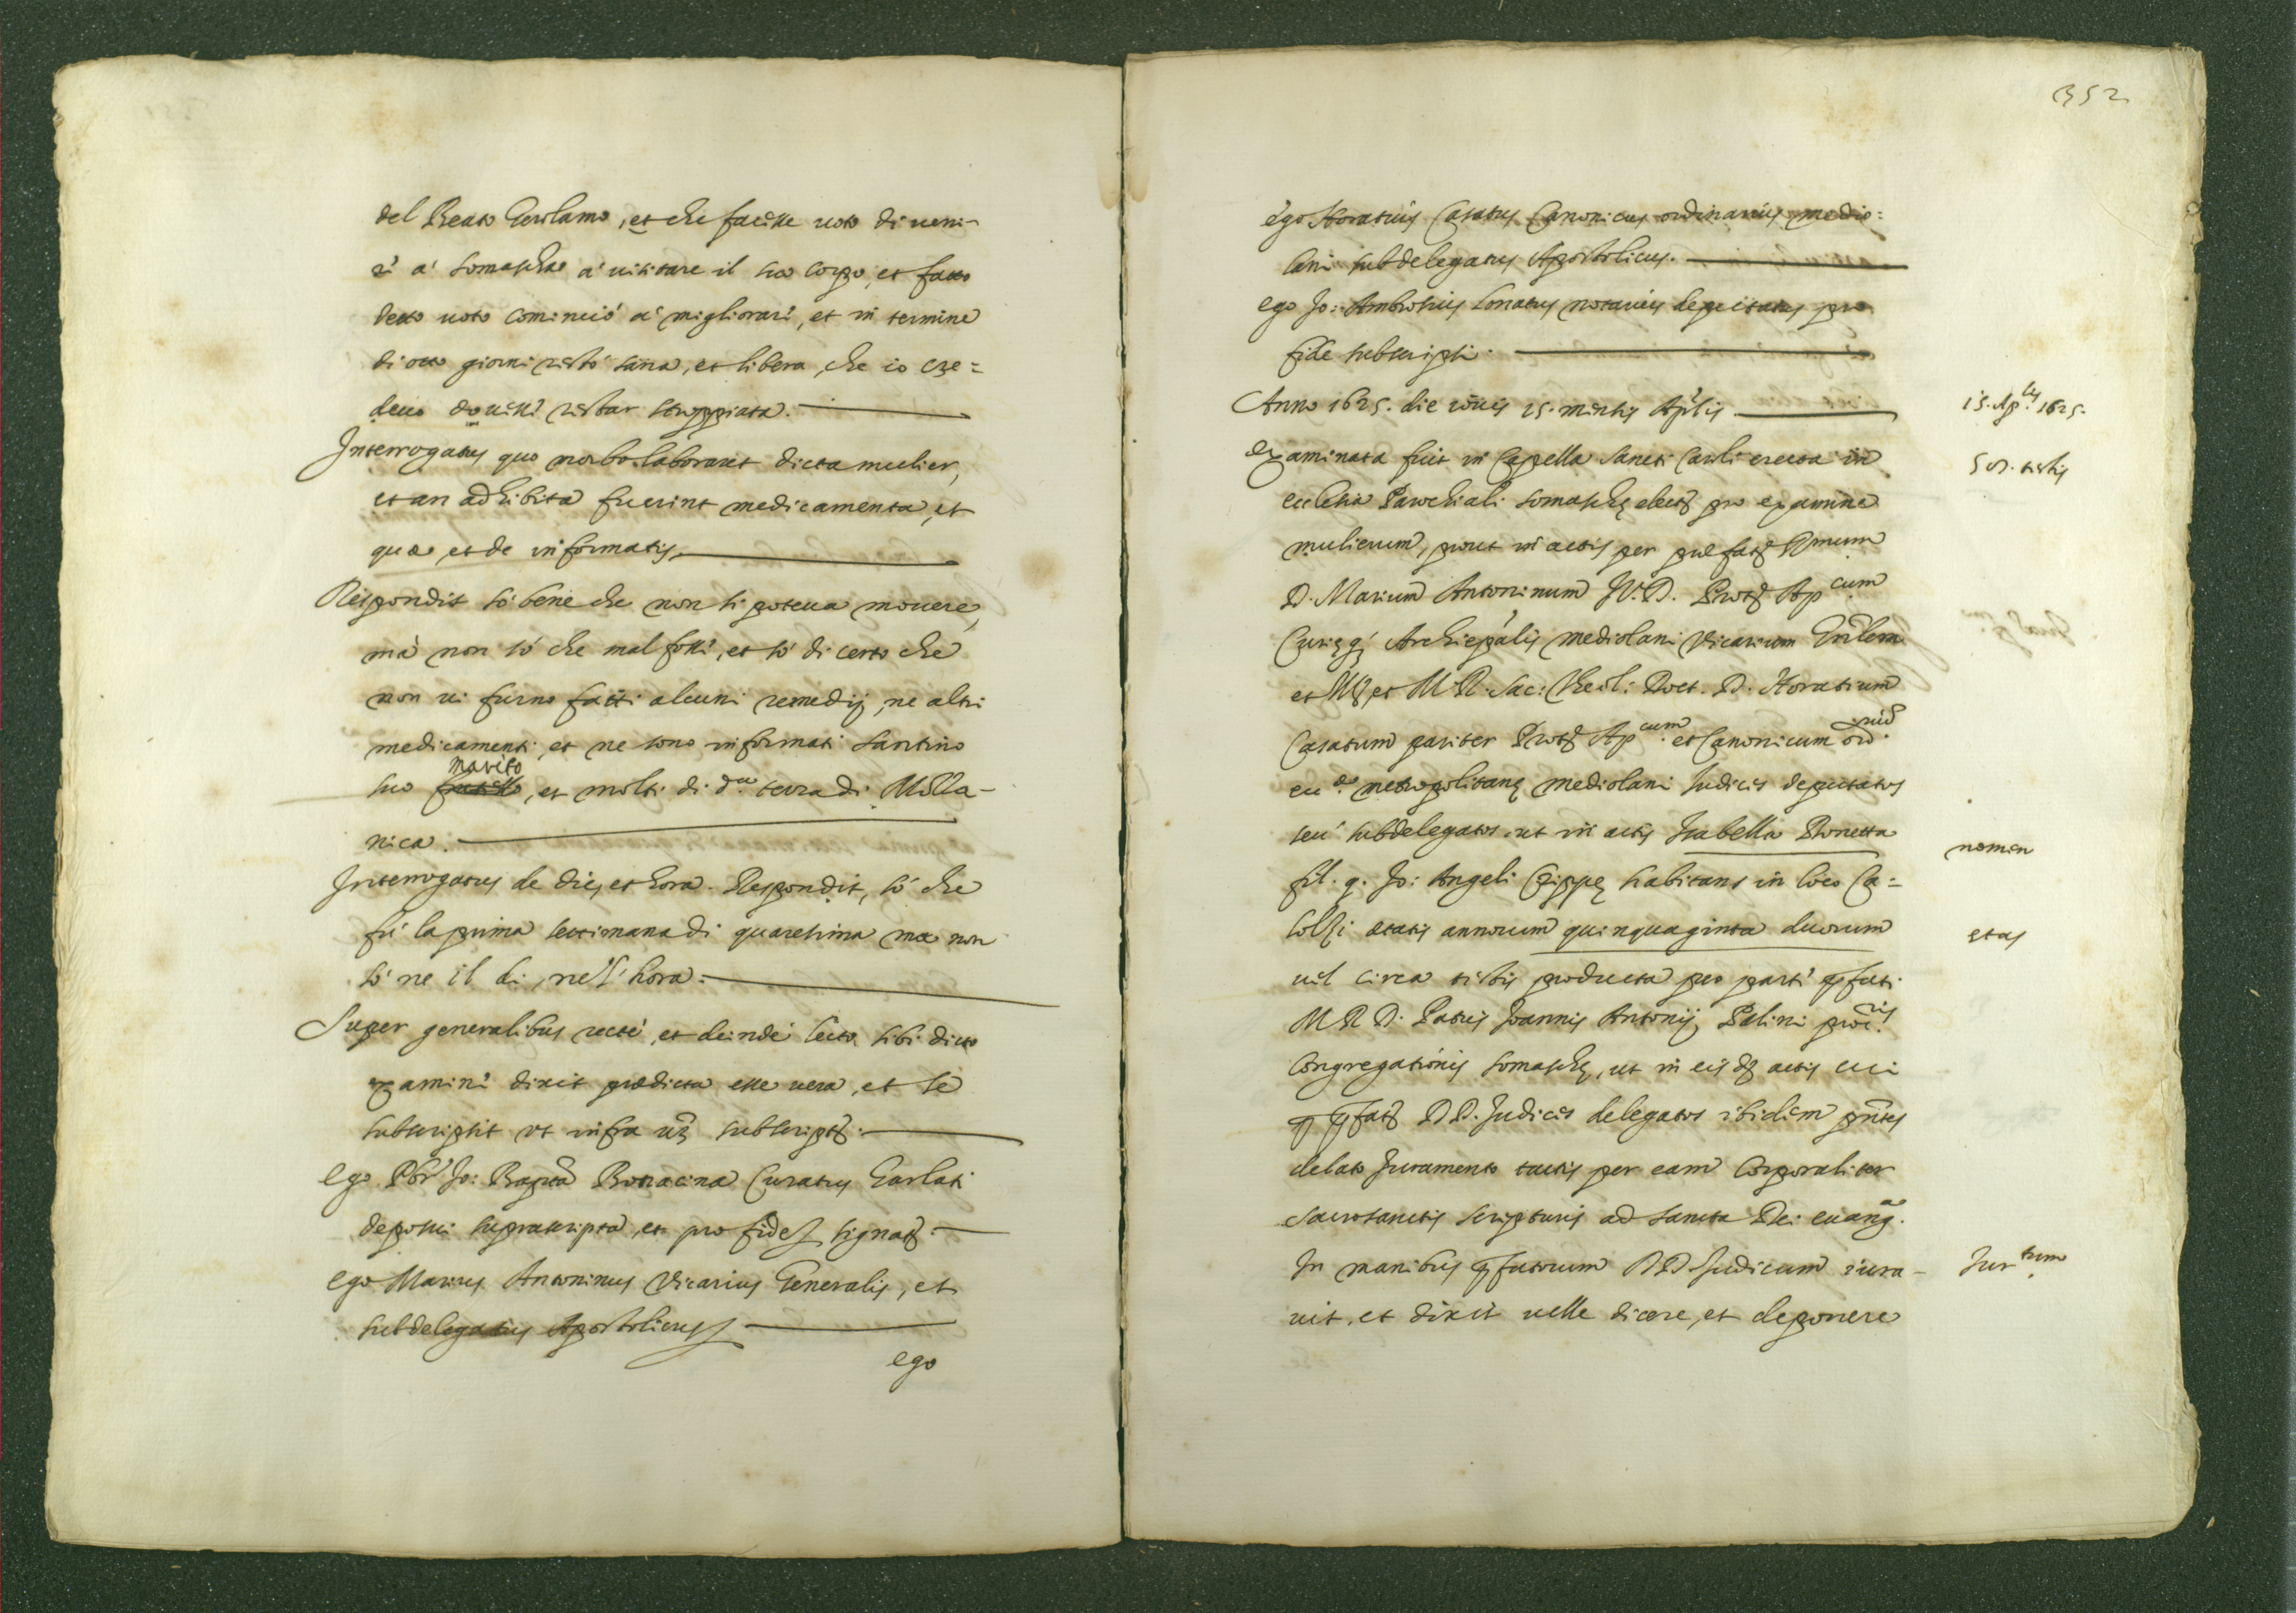 del Beato Gerolamo, et che facesse uoto di ueni-
re à Somascha à uisitare il suo corpo, et fatto
detto uoto cominciò à migliorare, et in termine
di otto giorni restò sana, et libera, che io cre=
deuo douesse restar stroppiata.
Interrogatus quo morbo laboraret dicta mulier,
et an adhibita fuerint medicamenta, et
quæ, et de informatis.
Respondit sò bene che non si poteua mouere,
mà non sò che mal fosse, et sò di certo che
non ui furno fatti alcuni remedij, ne altri
medicamenti, et ne sono informati Santino
suo marito, et molti di d.ᵃ terra di Molla-
nica.
Interrogatus de die, et hora. Respondit, sò che
fù la prima settimana di quaresima ma non
sò ne il di, ne l'hora.
Super generalibus recte, et deinde lecto sibi dicto
examine dixit prædicta esse uera, et se
subscripsit ut infra uz subscript.
Ego Pbr Jo: Bapta Bottacina Curatus Garlati
deposui suprascripta, et pro fide signa.
Ego Marius Antoninus Vicarius Generalis, et
subdelegatus Apostolicus
ego
352
ego Horatius Casatus Canonicus ordinarius medio=
lani subdelegatus Apostolicus.
ego Jo: Ambrosius Lonatus notarius deputatus pro
fide subscripsi.
Anno 1625. die mensis Aprilis
15. Ap.lis 1625.
examinata fuit in Cappella Sancti Carli erecta in
50. testis
ecclesia Parochiali Somaschę elect pro examine
mulierum, prout in actis per præfat Rmum
D. Marium Antoninum J.V.D. Prot Ap.cum
Curięq Archiepalis mediolani Vicarium Gnlem
et Ill et M.R. Sac: Theol: Doct. D. Horatium
Casatum pariter Prot Ap.cum et Canonicum ord.
eccæ metropolitanę mediolani Judices deputatos
seu subdelegatos ut in actis Isabella Bonetta
nomen
fil. q. Jo: Angeli Crippę habitans in loco Ca=
lolzi ætatis annorum quinquaginta duorum
ętas
uel circa testis producta pro parte pfati
M R D. Patris Joannis Antonij Palini procris
Congregationis Somaschę, ut in eisdē actis cui
p pfat DD. Judices delegatos ibidem pntes
delato Juramento tactis per eam corporaliter
Sacrosanctis scripturis ad Sancta Dei euang.
In manibus pfatorum DD. Judicum iura-
Jurtum
uit, et dixit uelle dicere, et deponere